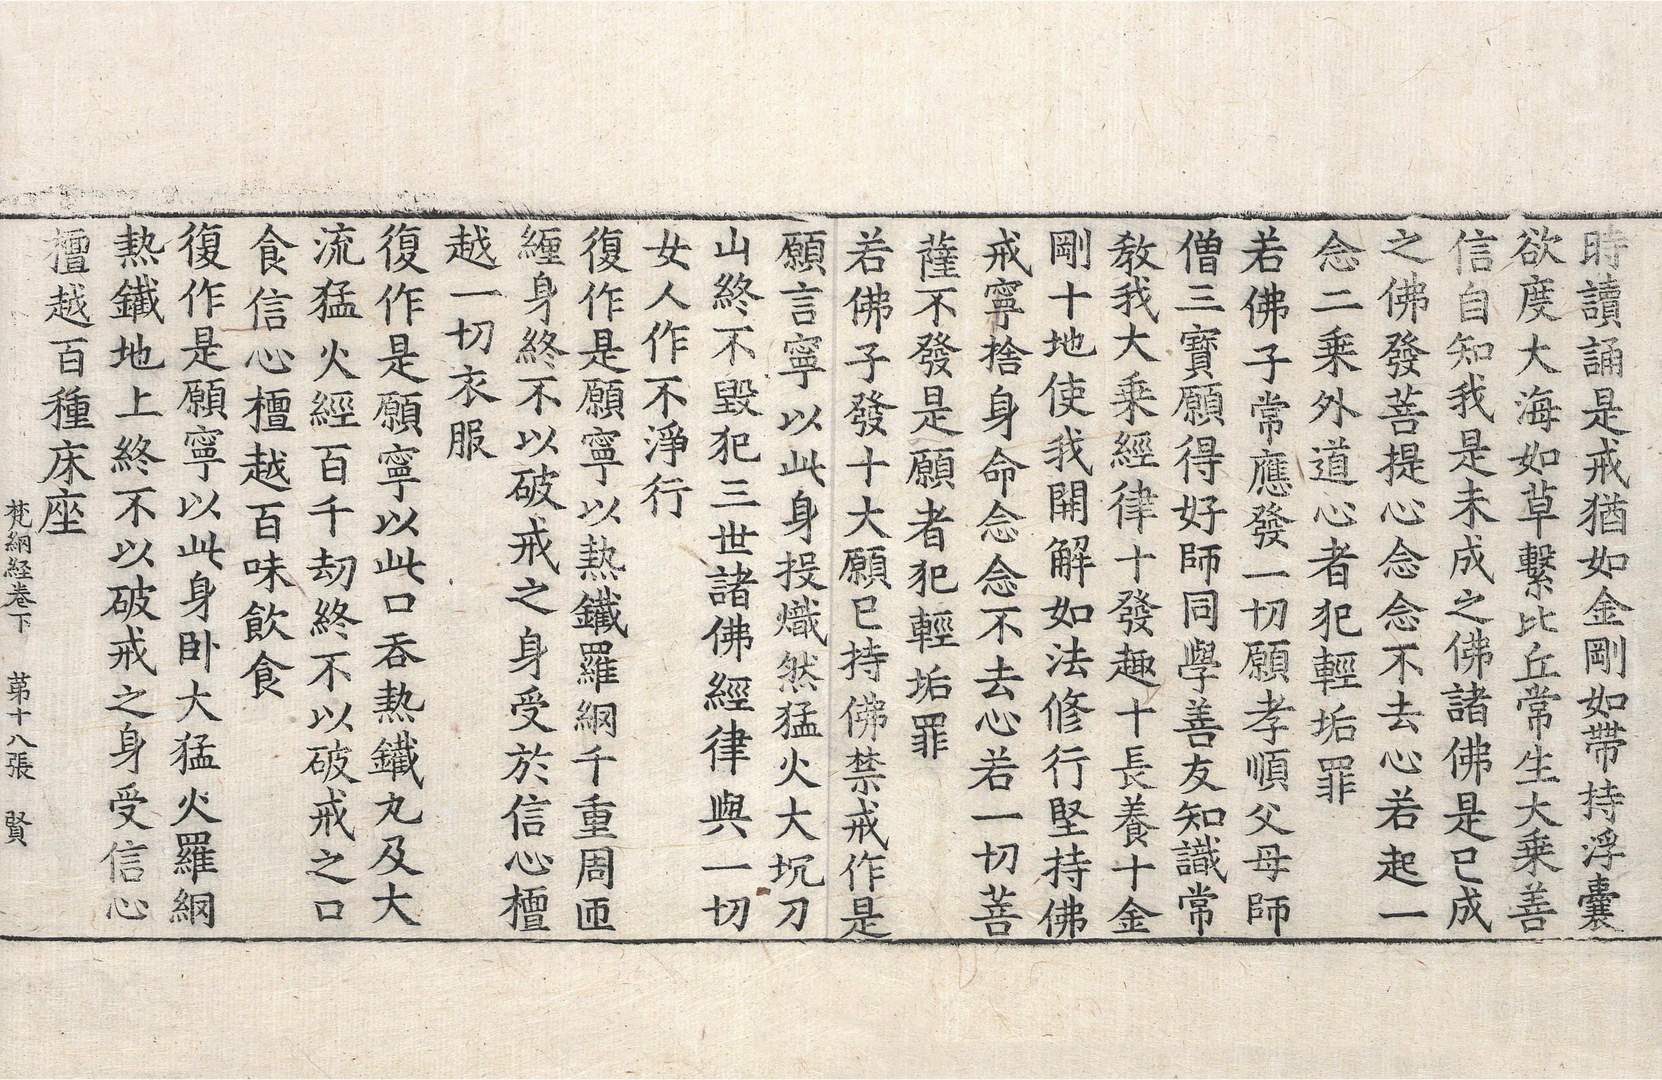 時讀誦是戒猶如金剛如帶持浮囊
欲度大海如草繫比丘常生大乘善
信自知我是未成之佛諸佛是已成
之佛發菩提心念念不去心若起一
念二乘外道心者犯輕垢罪
若佛子常應發一切願孝順父母師
僧三寶願得好師同學善友知識常
教我大乘經律十發趣十長養十金
剛十地使我開解如法修行堅持佛
戒寧捨身命念念不去心若一切菩
薩不發是願者犯輕垢罪
若佛子發十大願已持佛禁戒作是
願言寧以此身投熾然猛火大坑刀
山終不毀犯三世諸佛經律與一切
女人作不淨行
復作是願寧以熱鐵羅網千重周匝
纏身終不以破戒之身受於信心檀
越一切衣服
復作是願寧以此口吞熱鐵丸及大
流猛火經百千劫終不以破戒之口
食信心檀越百味飲食
復作是願寧以此身臥大猛火羅網
熱鐵地上終不以破戒之身受信心
檀越百種床座
梵網経卷下 苐十八張 賢